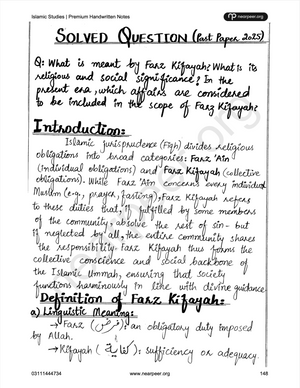 Islamic Studies | Premium Handwritten Notes
www.nearpeer.org
SOLVED QUESTION (Past Paper 2025)
Q: What is meant by Farz Kifayah? What is its
religious and social significance? In the
present era, which affairs are considered
to be included in the scope of Farz Kifayah?
Introduction:
Islamic jurisprudence (Fiqh) divides religious
obligations into broad categories: Farz 'Ain
(individual obligations) and Farz Kifayah (collective
obligations). While Farz 'Ain concerns every individual
Muslim (e.g., prayer, fasting), Farz Kifayah refers
to those duties that, if fulfilled by some members
of the community, absolve the rest of sin- but
if neglected by all, the entire community shares
the responsibility. Farz Kifayah thus forms the
collective conscience and social backbone of
the Islamic Ummah, ensuring that society
functions harmoniously in line with divine guidance.
Definition of Farz Kifayah:
a) Linguistic Meaning:
→ Farz (فرض): an obligatory duty imposed
by Allah.
→ Kifayah (كفاية): sufficiency or adequacy.
03111444734
www.nearpeer.org
148